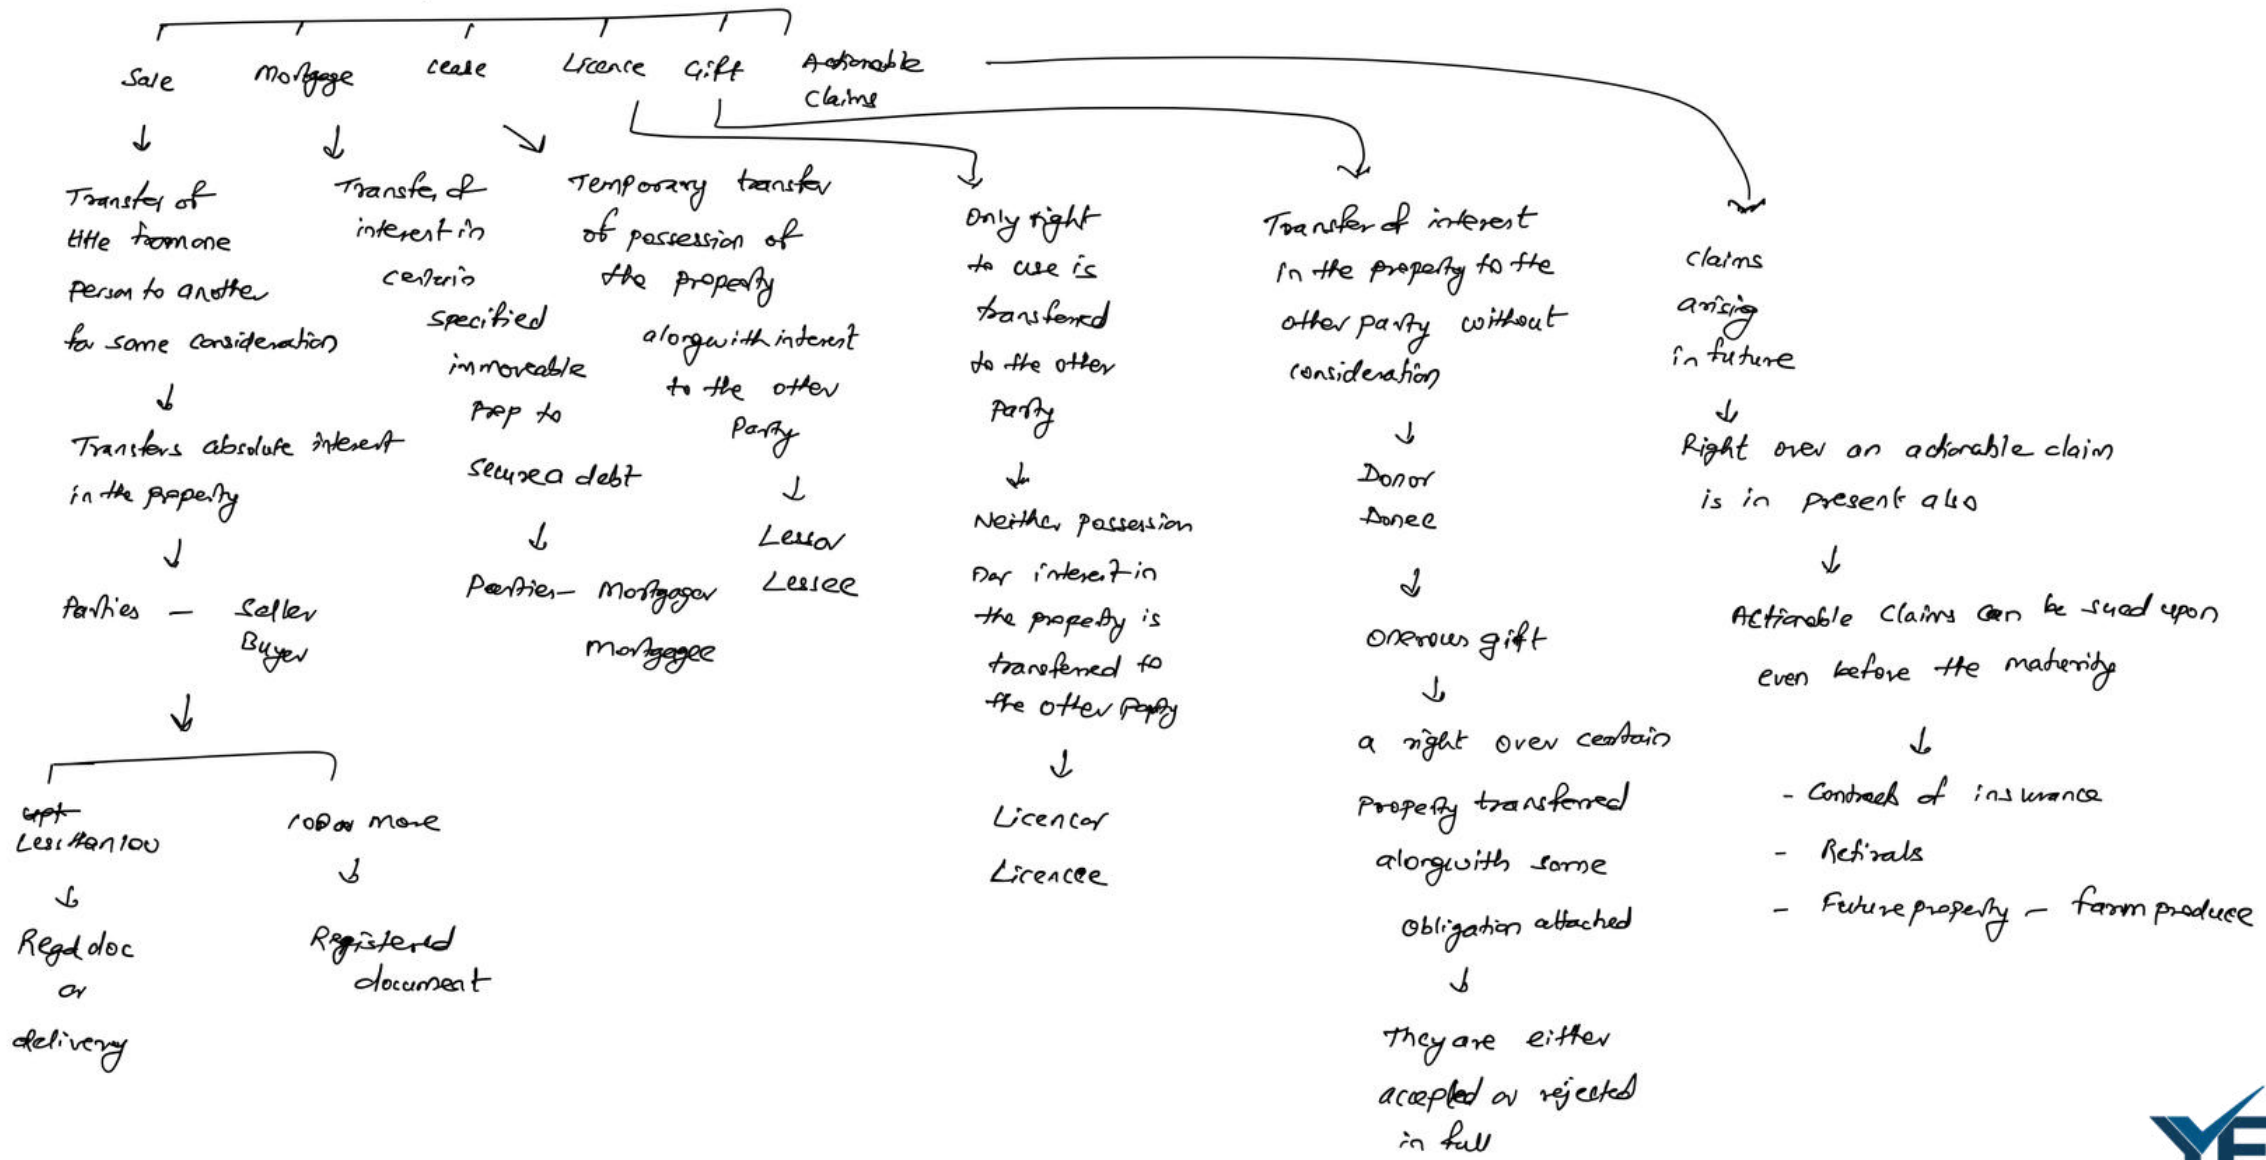 Sale
Mortgage
Lease
Licence
Gift
Actionable
Claims
Transfer of
title from one
person to another
for some consideration
Transfers absolute interest
in the property
Parties - Seller
Buyer
Less than 100
Regd doc
or
delivery
100 or more
Registered
document
Transfer of
interest in
certain
specified
immoveable
prop to
secure a debt
Parties - Mortgagor
Mortgagee
Temporary transfer
of possession of
the property
alongwith interest
to the other
Party
Lessor
Lessee
Only right
to use is
transferred
to the other
party
Neither possession
nor interest in
the property is
transferred to
the other party
Licencor
Licencee
Transfer of interest
in the property to the
other party without
consideration
Donor
Donee
Onerous gift
a right over certain
property transferred
alongwith some
obligation attached
They are either
accepted or rejected
in full
claims
arising
in future
Right over an actionable claim
is in present also
Actionable Claims can be sued upon
even before the maturity
- Contract of insurance
- Retirals
- Future property - farm produce
YE